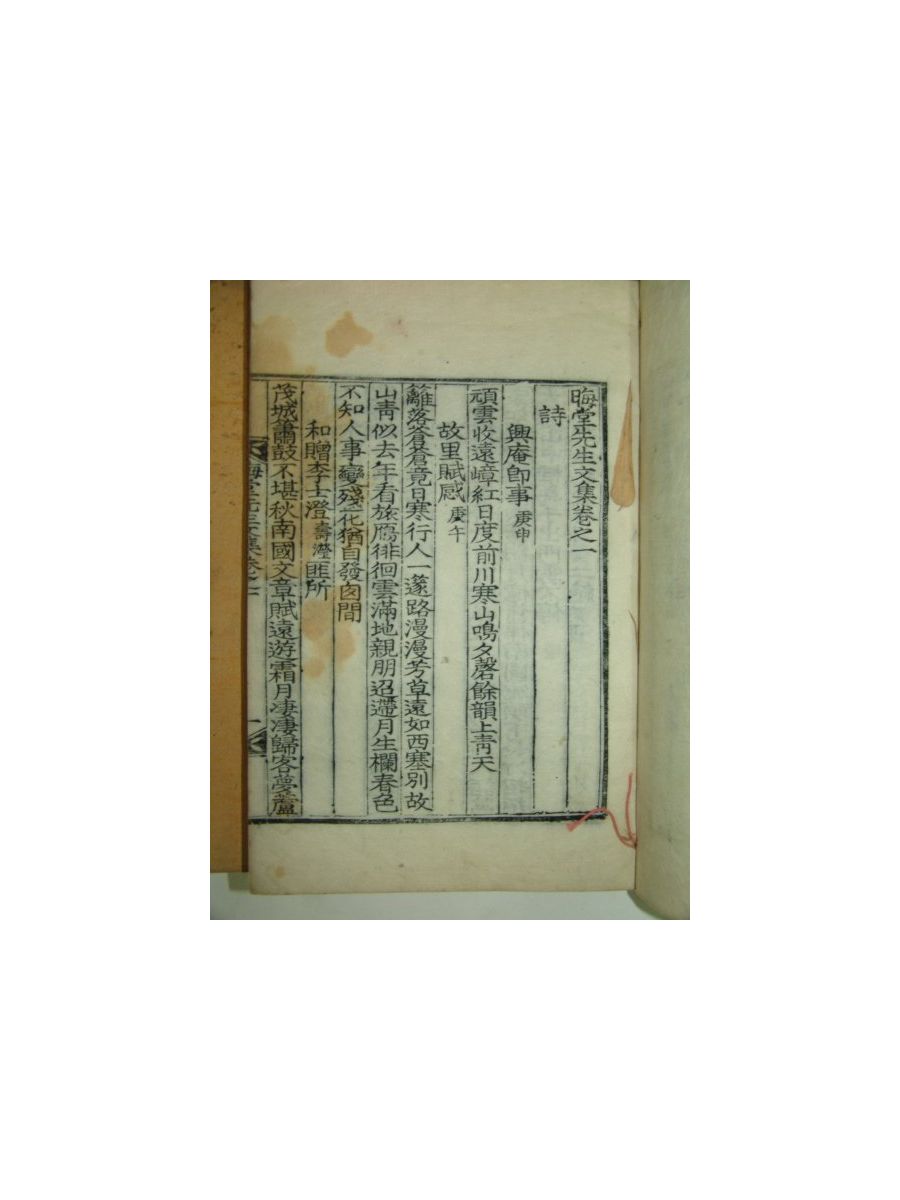 晦堂先生文集卷之一
詩
興庵卽事 庚申
頑雲收遠嶂紅日度前川寒山鳴夕磬餘韻上靑天
故里賦感 庚午
籬落蒼蒼竟日寒行人一邃路漫漫芳草遠如西塞別故
山靑似去年看旅鴈徘徊雲滿地親朋迢遰月生欄春色
不知人事變殘花猶自發囱間
和贈李士澄 壽瀅 匪所
茂城簫鼓不堪秋南國文章賦遠遊霜月凄凄歸客夢蘆
晦堂先生文集卷之一
一